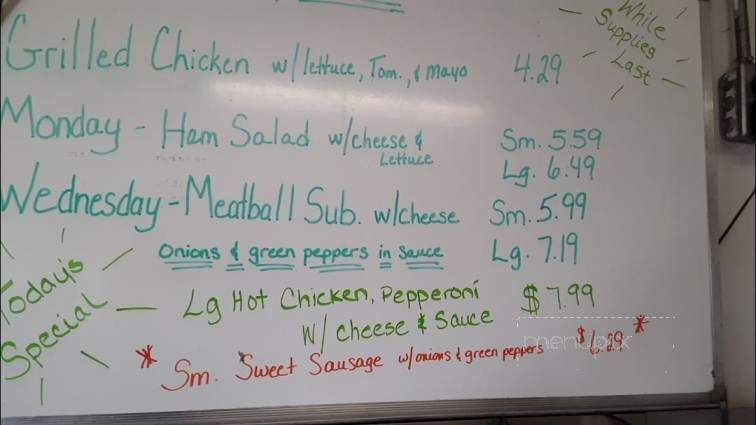 While
Supplies
Last
Grilled Chicken w/lettuce, Tom., & mayo 4.29
Monday - Ham Salad w/cheese & Lettuce Sm. 5.59
Lg. 6.49
Wednesday - Meatball Sub. w/cheese Sm. 5.99
Onions & green peppers in sauce Lg. 7.19
Today's
Special
Lg Hot Chicken, Pepperoni $7.99
w/ cheese & Sauce
* Sm. Sweet Sausage w/onions & green peppers $6.29 *
menupix